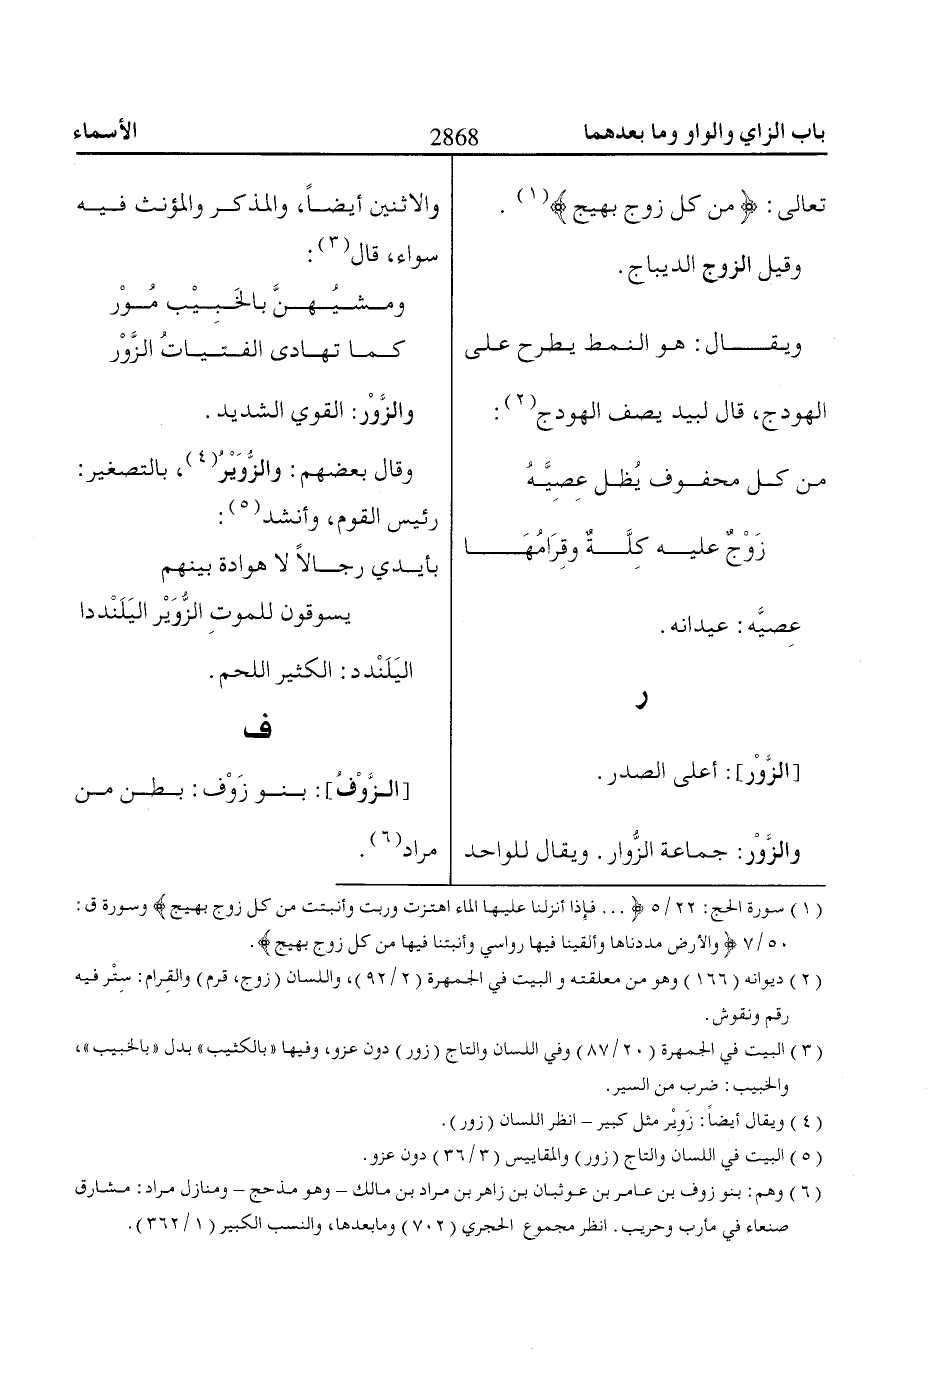 باب الزاي والواو وما بعدهما 2868 الأسماء
تعالى: ﴿من كل زوج بهيج﴾(١).
وقيل الزوج الديباج.
ويقــــال: هو النمط يطرح على
الهودج، قال لبيد يصف الهودج(٢):
من كـل محفـوف يُظل عِصِيَّهُ
زَوْجٌ عليـه كِلَّـةٌ وقِرَامُهَـا
عِصِيَّه: عيدانه.
ر
[الزَّوْر]: أعلى الصدر.
والزَّوْر: جماعة الزُّوار. ويقال للواحد
والاثنين أيضـاً، والمذكـر والمؤنث فيـه
سواء، قال(٣):
ومـشـيُـهـنَّ بـالخَـبِـيْـب مُـوْر
كـمـا تـهـادى الفـتـيـاتُ الـزَّوْر
والزَّوْر: القوي الشديد.
وقال بعضهم: والزُّوَيْرُ(٤)، بالتصغير:
رئيس القوم، وأنشد(٥):
بأيـدي رجـالاً لا هوادة بينهم
يسوقون للموتِ الزُّوَيْر اليَلَنْددا
اليَلَنْدد: الكثير اللحم.
ف
[الـزَّوْفُ]: بـنـو زَوْف: بـطـن مـن
مراد(٦).
(١) سورة الحج: ٢٢/٥ ﴿... فإذا أنزلنا عليها الماء اهتزت وربت وأنبتت من كل زوج بهيج﴾ وسورة ق:
٥٠/٧ ﴿والأرض مددناها وألقينا فيها رواسي وأنبتنا فيها من كل زوج بهيج﴾.
(٢) ديوانه (١٦٦) وهو من معلقته و البيت في الجمهرة (٩٢/٢)، واللسان (زوج، قرم) والقِرام: ستْر فيه
رقم ونقوش.
(٣) البيت في الجمهرة (٨٧/٢٠) وفي اللسان والتاج (زور) دون عزو، وفيها «بالكثيب» بدل «بالخبيب»،
والخبيب: ضرب من السير.
(٤) ويقال أيضاً: زَوِيْر مثل كبير – انظر اللسان (زور).
(٥) البيت في اللسان والتاج (زور) والمقاييس (٣٦/٣) دون عزو.
(٦) وهم: بنو زوف بن عامر بن عوثبان بن زاهر بن مراد بن مالك – وهو مذحج – ومنازل مراد: مشارق
صنعاء في مأرب وحريب. انظر مجموع الحجري (٧٠٢) ومابعدها، والنسب الكبير (٣٦٢/١).